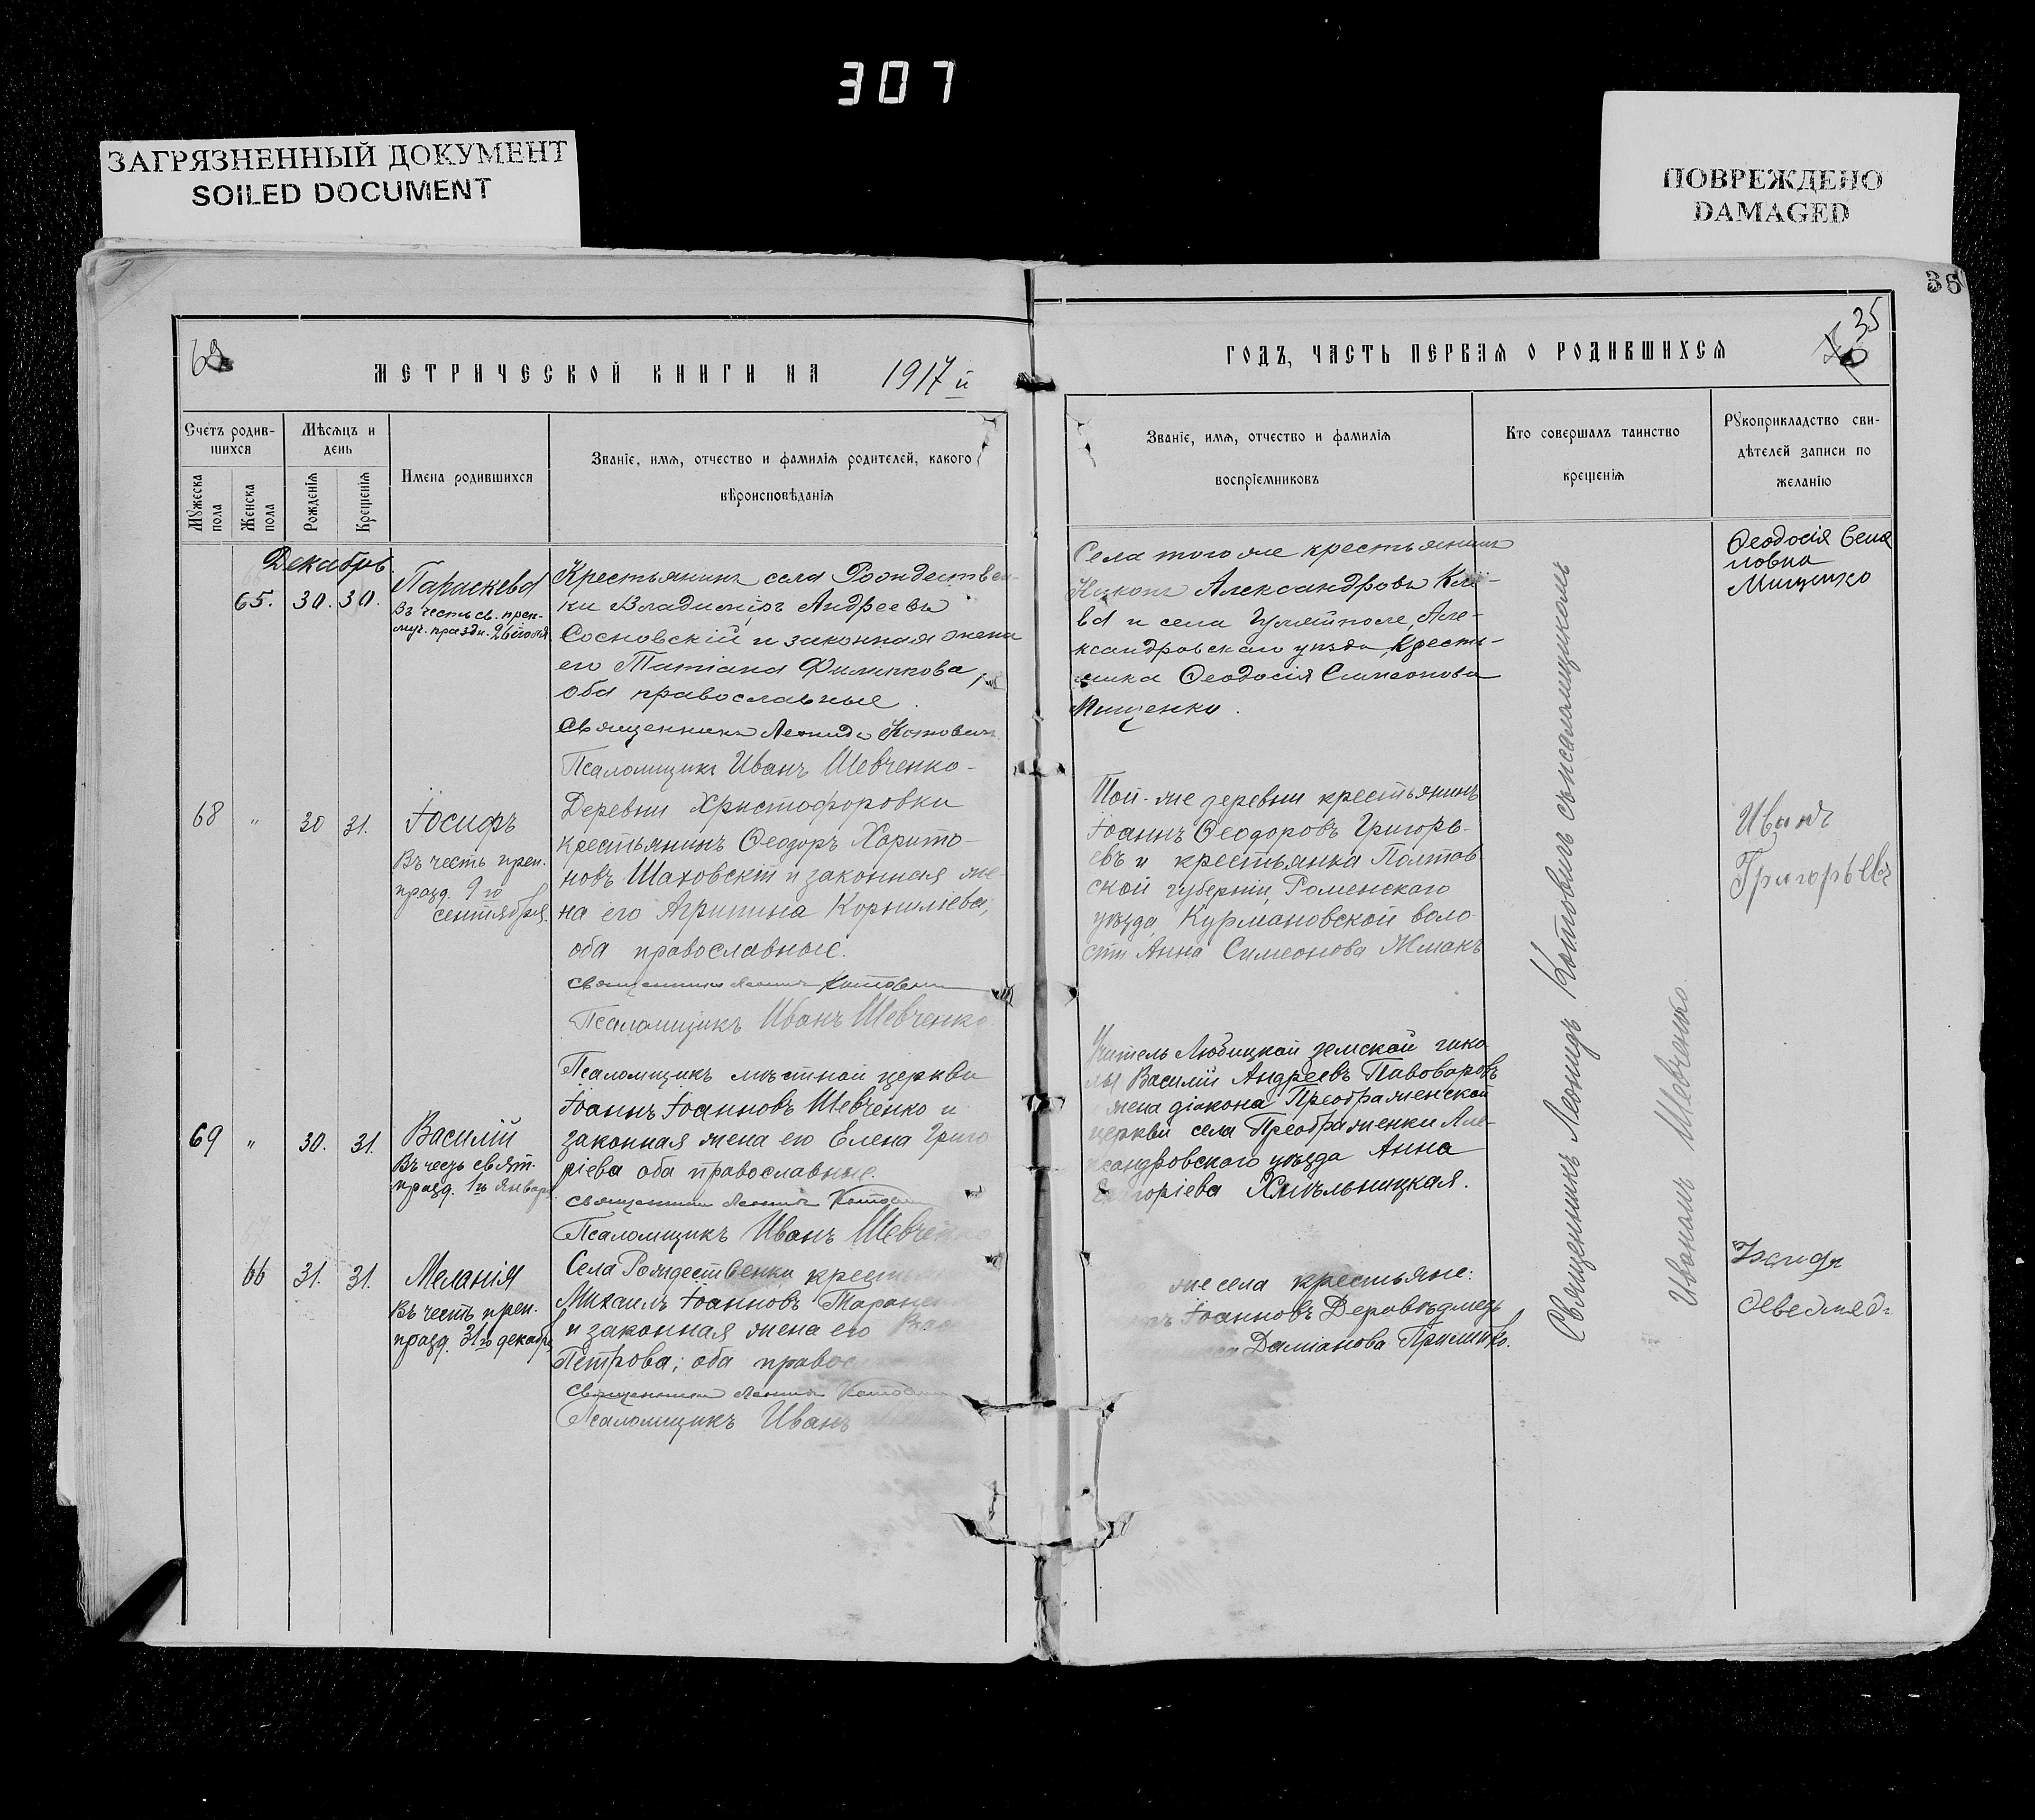 307
ЗАГРЯЗНЕННЫЙ ДОКУМЕНТ
SOILED DOCUMENT
ПОВРЕЖДЕНО
DAMAGED
36
35
МЕТРИЧЕСКОЙ КНИГИ НА 1917 й
ГОДЪ, ЧАСТЬ ПЕРВАЯ О РОДИВШИХСЯ
Счетъ родив-
шихся
Мѣсяцъ и
день
Мужеска
пола
Женска
пола
Рожденія
Крещенія
Имена родившихся
Званіе, имя, отчество и фамилія родителей, какого
вѣроисповѣданія
Званіе, имя, отчество и фамилія
воспріемниковъ
Кто совершалъ таинство
крещенія
Рукоприкладство сви-
дѣтелей записи по
желанію
Декабрь
65. 30. 30.
Параскева
Въ честь св. преп.-
муч. праздн. 26 іюля
Крестьянинъ села Рождествен-
ки Владиміръ Андреевъ
Сосновскій и законная жена
его Татіана Филиппова,
оба православные.
Священникъ Леонидъ Котовичъ
Псаломщикъ Иванъ Шевченко-
Села того же крестьянинъ
Александровъ
ва и села Гуляйполе, Але-
ксандровскаго уѣзда, Кресть-
янка Ѳеодосія Симеонова
Мищенко.
Ѳеодосія Семе
новна
Мищенко
68 " 30 31.
Іосифъ
Въ честь преп.
празд. 9 го
сентября.
Деревни Христофоровки
крестьянинъ Ѳеодоръ Харито-
новъ Шаховскій и законная же-
на его Агрипина Корнилиева,
оба православные.
Священникъ Леонидъ Котовичъ
Псаломщикъ Иванъ Шевченко
Той-же деревни крестьянинъ
Іоаннъ Ѳеодоровъ Григорь-
евъ и крестьянка Полтав-
ской губерніи, Роменскаго
уѣзда, Курмановской воло-
сти Анна Симеонова Жмакъ
Иванъ
Григорьевъ
69 " 30. 31.
Василій
Въ честь свят.
празд. 1 го января
Псаломщикъ мѣстной церкви
Іоаннъ Іоанновъ Шевченко и
законная жена его Елена Григо
ріева оба православные.
Священникъ Леонидъ Котовичъ
Псаломщикъ Иванъ Шевченко
Учитель Любицкой земской шко
лы Василій Андреевъ Пивоваровъ
жена діакона Преображенской
церкви села Преображенки Але-
ксандровскаго уѣзда Анна
Григоріева Хмѣльницкая.
66 31. 31.
Меланія
Въ честь преп.
празд. 31 го декабр.
Села Рождественки крестьян
Михаилъ Іоанновъ
и законная жена его
Петрова; оба правос
Священникъ Леонидъ
Псаломщикъ Иванъ
же села крестьяне:
Іоанновъ
Даміанова
Священникъ Леонидъ Котовичъ съ псаломщикомъ
Иваномъ Шевченко.